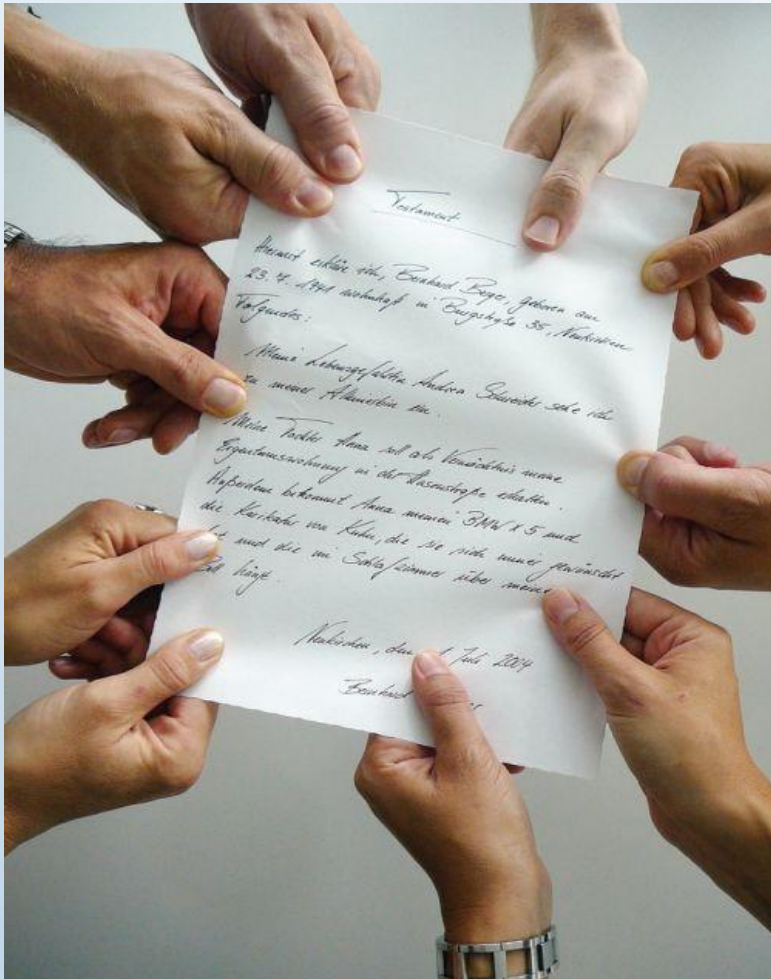 Testament
Hiermit erkläre ich, Bernhard Beyer, geboren am
23.4.1941 wohnhaft in Burgstraße 35, Neukirchen
Folgendes:
Meine Lebensgefährtin Andrea Schneider setze ich
zu meiner Alleinerbin ein.
Meine Tochter Anna soll als Vermächtnis meine
Eigentumswohnung in der Hasenstraße erhalten.
Außerdem bekommt Anna meinen BMW X5 und
die Karikatur von Kuhn, die sie sich immer gewünscht
hat und die im Schlafzimmer über meinem
Bett hängt.
Neukirchen, den Juli 2004
Bernhard